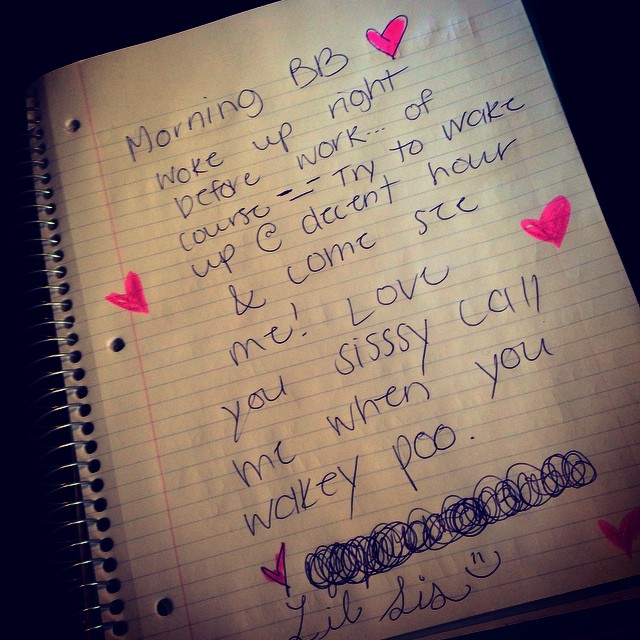 Morning BB
woke up right
before work... of
course -_- Try to wake
up @ decent hour
& come see
me! Love
you sisssy call
me when you
wakey poo.
Lil Sis